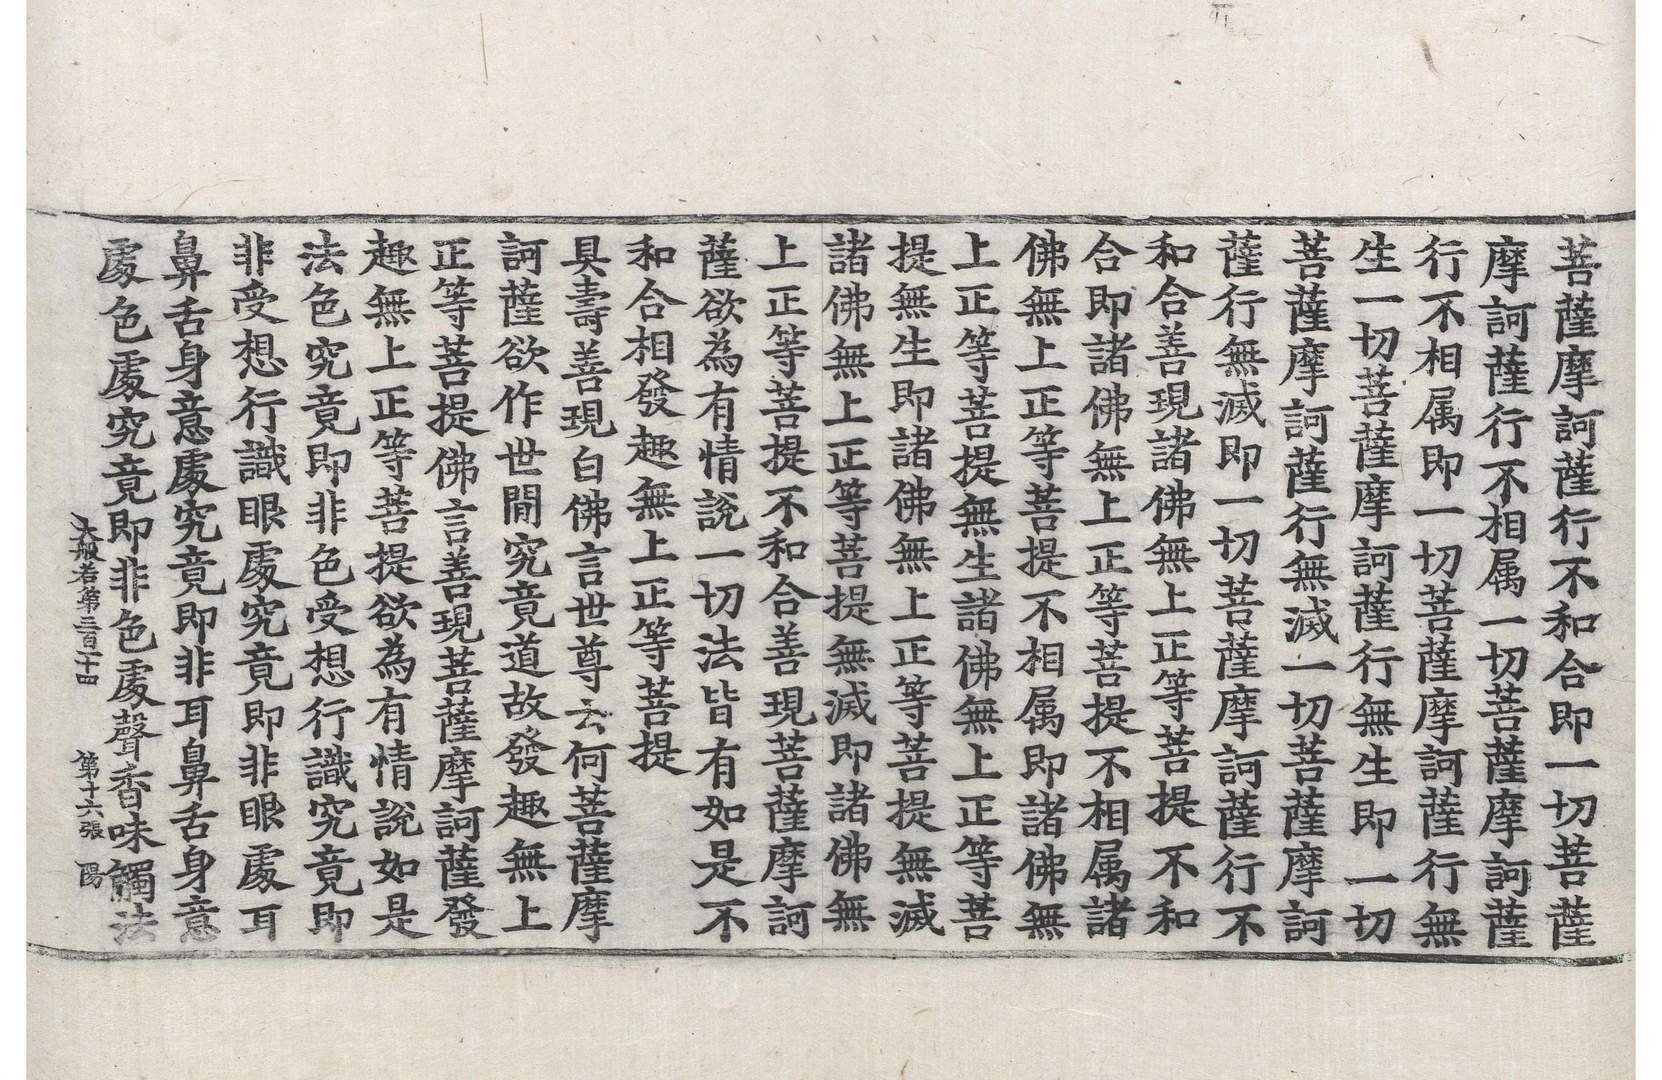 菩薩摩訶薩行不和合即一切菩薩
摩訶薩行不相属一切菩薩摩訶薩
行不相属即一切菩薩摩訶薩行無
生一切菩薩摩訶薩行無生即一切
菩薩摩訶薩行無滅一切菩薩摩訶
薩行無滅即一切菩薩摩訶薩行不
和合善現諸佛無上正等菩提不和
合即諸佛無上正等菩提不相属諸
佛無上正等菩提不相属即諸佛無
上正等菩提無生諸佛無上正等菩
提無生即諸佛無上正等菩提無滅
諸佛無上正等菩提無滅即諸佛無
上正等菩提不和合善現菩薩摩訶
薩欲為有情說一切法皆有如是不
和合相發趣無上正等菩提
具壽善現白佛言世尊云何菩薩摩
訶薩欲作世間究竟道故發趣無上
正等菩提佛言善現菩薩摩訶薩發
趣無上正等菩提欲為有情說如是
法色究竟即非色受想行識究竟即
非受想行識眼處究竟即非眼處耳
鼻舌身意處究竟即非耳鼻舌身意
處色處究竟即非色處聲香味觸法
大般若第三百十四 第十六張 陽